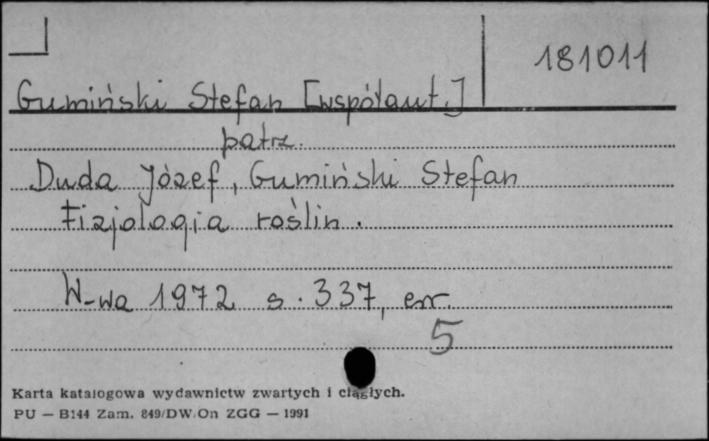 181011
Gumiński Stefan [współaut.]
patrz.
Duda Józef, Gumiński Stefan
Fizjologia roślin.
W-wa 1972 s. 337, err.
5
Karta katalogowa wydawnictw zwartych i ciągłych.
PU — B144 Zam. 849/DW/On ZGG — 1991